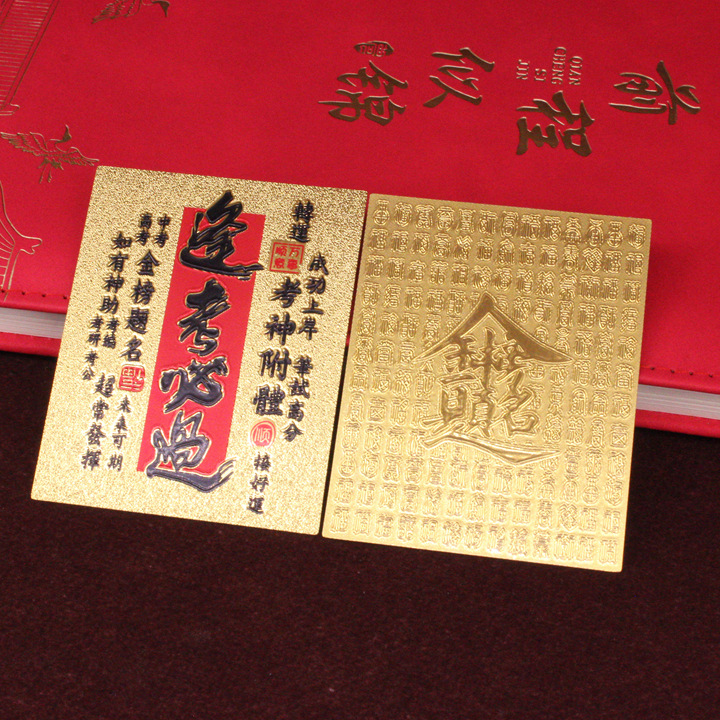 前程似锦
QIAN
CHENG
SI
JIN
逢考必過
轉運
成功上岸
筆試高分
考神附體
順
接好運
中考
高考
金榜題名
如有神助
考編
考研考公
超常發揮
未来可期